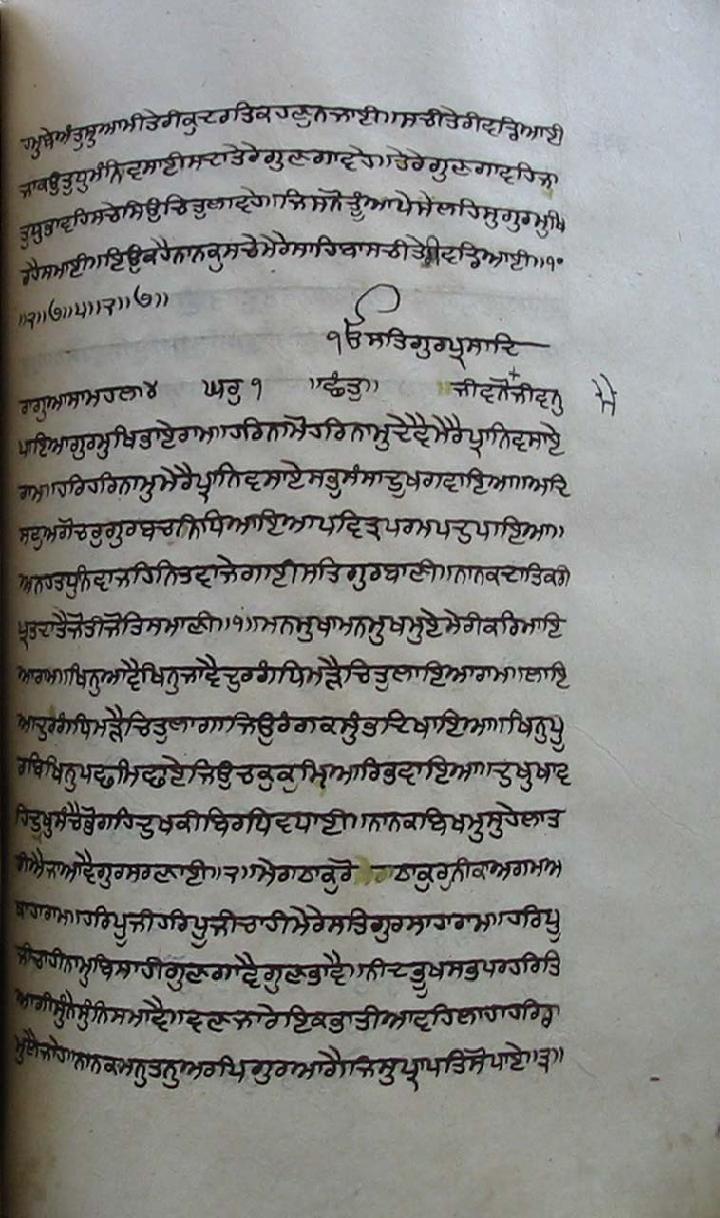 ਹਮੁਬੇਅੰਤੁਸੁਆਮੀਤੇਰੀਕੁਦਰਤਿਕਹਣੁਨਜਾਈ॥ਸਚੀਤੇਰੀਵਡਿਆਈ
ਜਾਕਉਤੁਧੁਮੰਨਿਵਸਾਈਸਦਾਤੇਰੇਗੁਣਗਾਵਹੇ॥ਤੇਰੇਗੁਣਗਾਵਹਿਜਾ
ਤੁਧੁਭਾਵਹਿਸਚੇਸਿਉਚਿਤੁਲਾਵਹੇ॥ਜਿਸਨੋਤੂੰਆਪੇਮੇਲਹਿਸੁਗੁਰਮੁਖਿ
ਰਹੈਸਮਾਈ॥ਇਉਕਹੈਨਾਨਕੁਸਚੇਮੇਰੇਸਾਹਿਬਾਸਚੀਤੇਰੀਵਡਿਆਈ॥੧੦
॥੨॥੭॥੫॥੨॥੭॥
੧ਓੁਸਤਿਗੁਰਪ੍ਰਸਾਦਿ
ਰਾਗੁਆਸਾਮਹਲਾ੪ ਘਰੁ ੧ ॥ਛੰਤੁ॥ ॥ਜੀਵਨੋਜੀਵਨੁ ਮੈ
ਪਾਇਆਗੁਰਮੁਖਿਭਾਏਰਾਮ॥ਹਰਿਨਾਮੋਹਰਿਨਾਮੁਦੇਵੈਮੇਰੈਪ੍ਰਾਨਿਵਸਾਏ
ਰਾਮ॥ਹਰਿਹਰਿਨਾਮੁਮੇਰੈਪ੍ਰਾਨਿਵਸਾਏਸਭੁਸੰਸਾਦੁਖਗਵਾਇਆ॥ਅਦਿ
ਸਟੁਅਗੋਚਰੁਗੁਰਬਚਨਿਧਿਆਇਆਪਵਿਤ੍ਰਪਰਮਪਦੁਪਾਇਆ॥
ਅਨਹਤਧੁਨਿਵਾਜਹਿਨਿਤਵਾਜੇਗਾਈਸਤਿਗੁਰਬਾਣੀ॥ਨਾਨਕਦਾਤਿਕਰੀ
ਪ੍ਰਭਦਾਤੈਜੋਤੀਜੋਤਿਸਮਾਣੀ॥੧॥ਮਨਮੁਖਾਮਨਮੁਖਮੁਏਮੇਰੀਕਰਿਮਾਇ
ਆਰਾਮ॥ਖਿਨੁਆਵੈਖਿਨੁਜਾਵੈਦੁਰਗੰਧਿਮੜੈਚਿਤੁਲਾਇਆਰਾਮ॥ਲਾਇ
ਆਦੁਰਗੰਧਿਮੜੈਚਿਤੁਲਾਗਾਜਿਉਰੰਗਕਸੁੰਭਦਿਖਾਇਆ॥ਖਿਨੁਪੂ
ਰਬਿਖਿਨੁਪਛਮਿਛਾਏਜਿਉਚਕੁਕੁਮ੍ਹਿਆਰਿਭਵਾਇਆ॥ਦੁਖੁਖਾਵ
ਹਿਦੁਖੁਸੰਚੈਭੋਗਹਿਦੁਖਕੀਬਿਰਧਿਵਧਾਈ॥ਨਾਨਕਬਿਖਮੁਸੁਹੇਲਾਤ
ਰੀਐਜਾਆਵੈਗੁਰਸਰਣਾਈ॥੨॥ਮੇਰਾਠਾਕੁਰੋ ਠਾਕੁਰੁਨੀਕਾਅਗਮਅ
ਥਾਹਾਰਾਮ॥ਹਰਿਪੂਜੀਹਰਿਪੂਜੀਚਾਹੀਮੇਰੇਸਤਿਗੁਰਸਾਹਾਰਾਮ॥ਹਰਿਪੂ
ਜੀਚਾਹੀਨਾਮੁਬਿਸਾਹੀਗੁਣਗਾਵੈਗੁਣਭਾਵੈ॥ਨੀਦਭੂਖਸਭਪਰਹਰਿਤਿ
ਆਗੀਸੁੰਨੇਸੁੰਨਿਸਮਾਵੈ॥ਵਣਜਾਰੇਇਕਭਾਤੀਆਵਹਿਲਾਹਾਹਰਿਨਾ
ਮੁਲੈਜਾਹੇ॥ਨਾਨਕਮਨੁਤਨੁਅਰਪਿਗੁਰਆਗੈਜਿਸੁਪ੍ਰਾਪਤਿਸੋਪਾਏ॥੩॥